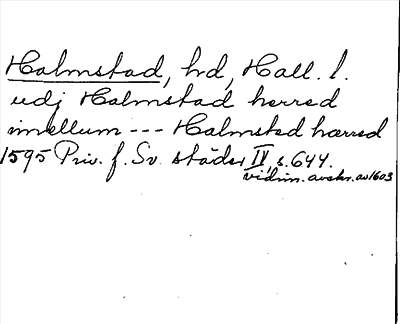 Halmstad, hd, Hall. l.
udj Halmstad herred
imellum --- Halmsted hærred
1595 Priv. f. Sv. städer IV, s. 644.
vidim. avskr. av 1603